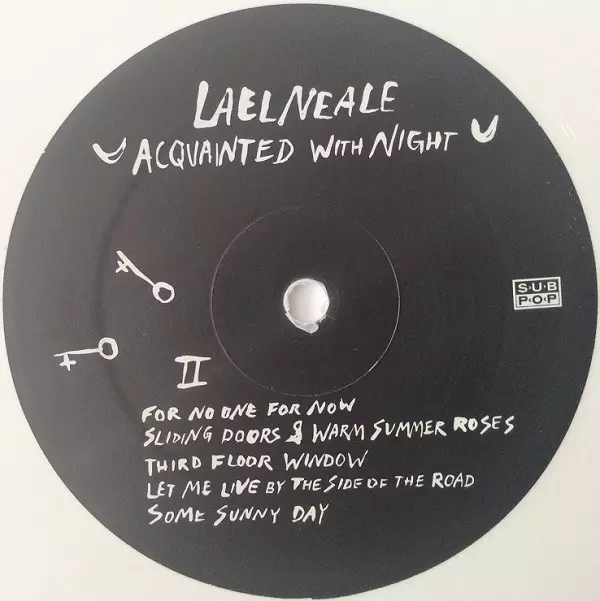 LAEL NEALE
ACQUAINTED WITH NIGHT
SUB
POP
II
FOR NO ONE FOR NOW
SLIDING DOORS & WARM SUMMER ROSES
THIRD FLOOR WINDOW
LET ME LIVE BY THE SIDE OF THE ROAD
SOME SUNNY DAY